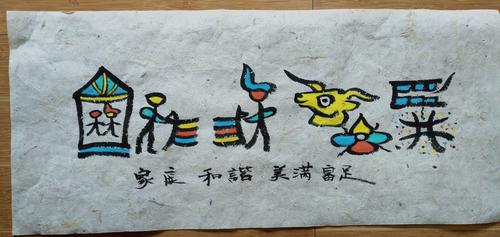 家庭 和諧 美满富足